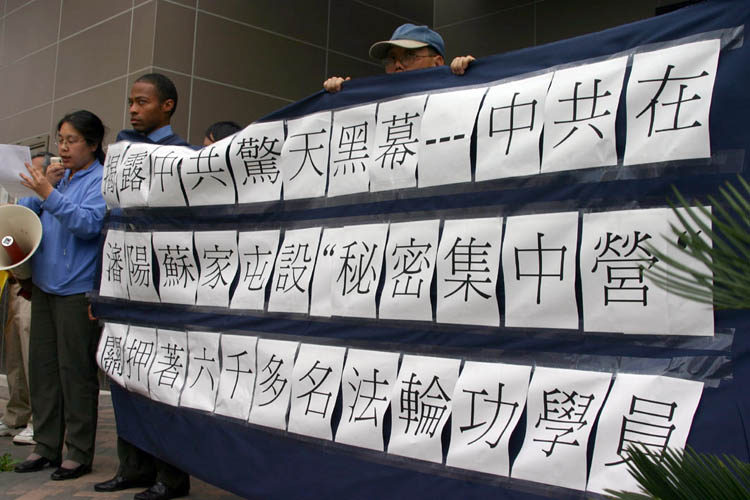 揭露中共驚天黑幕---中共在
瀋陽蘇家屯設“秘密集中營“
關押著六千多名法輪功學員